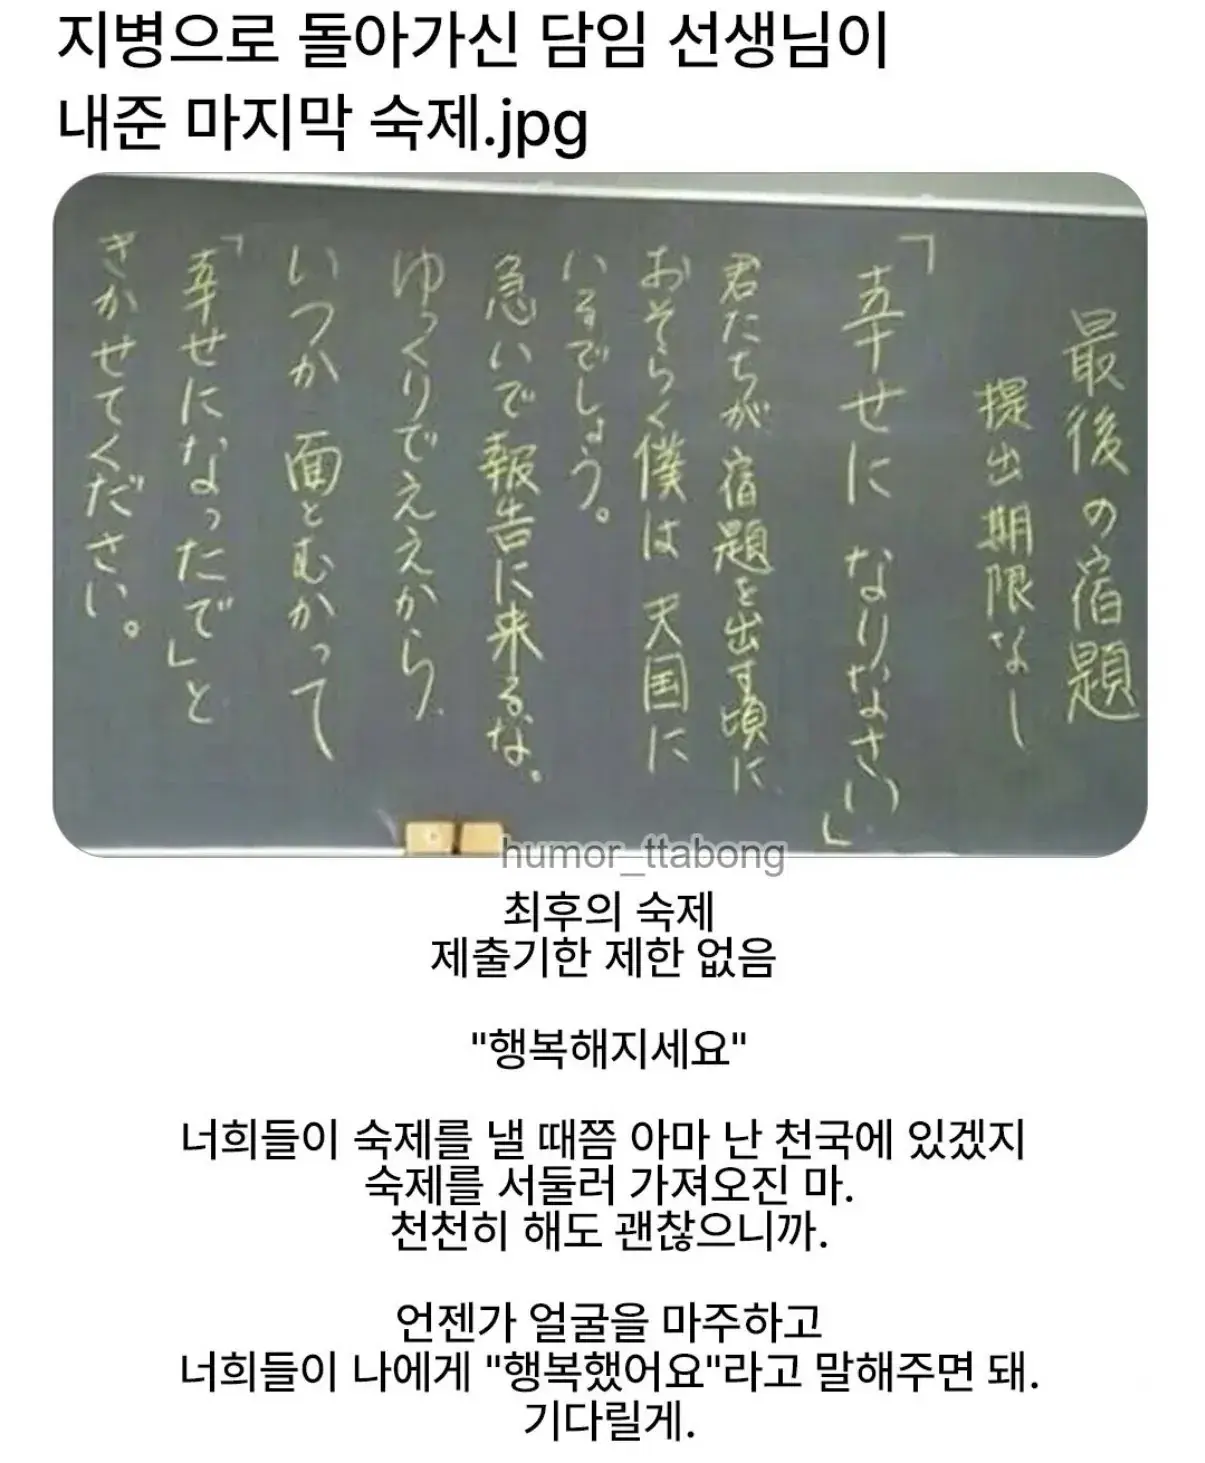 지병으로 돌아가신 담임 선생님이
내준 마지막 숙제.jpg
最後の宿題
提出期限なし
「幸せに なりなさい」
君たちが宿題を出す頃に
おそらく僕は天国に
いるでしょう。
急いで報告に来るな。
ゆっくりでええから
いつか 面とむかって
「幸せになったで」と
きかせてください。
humor_ttabong
최후의 숙제
제출기한 제한 없음
"행복해지세요"
너희들이 숙제를 낼 때쯤 아마 난 천국에 있겠지
숙제를 서둘러 가져오진 마.
천천히 해도 괜찮으니까.
언젠가 얼굴을 마주하고
너희들이 나에게 "행복했어요"라고 말해주면 돼.
기다릴게.